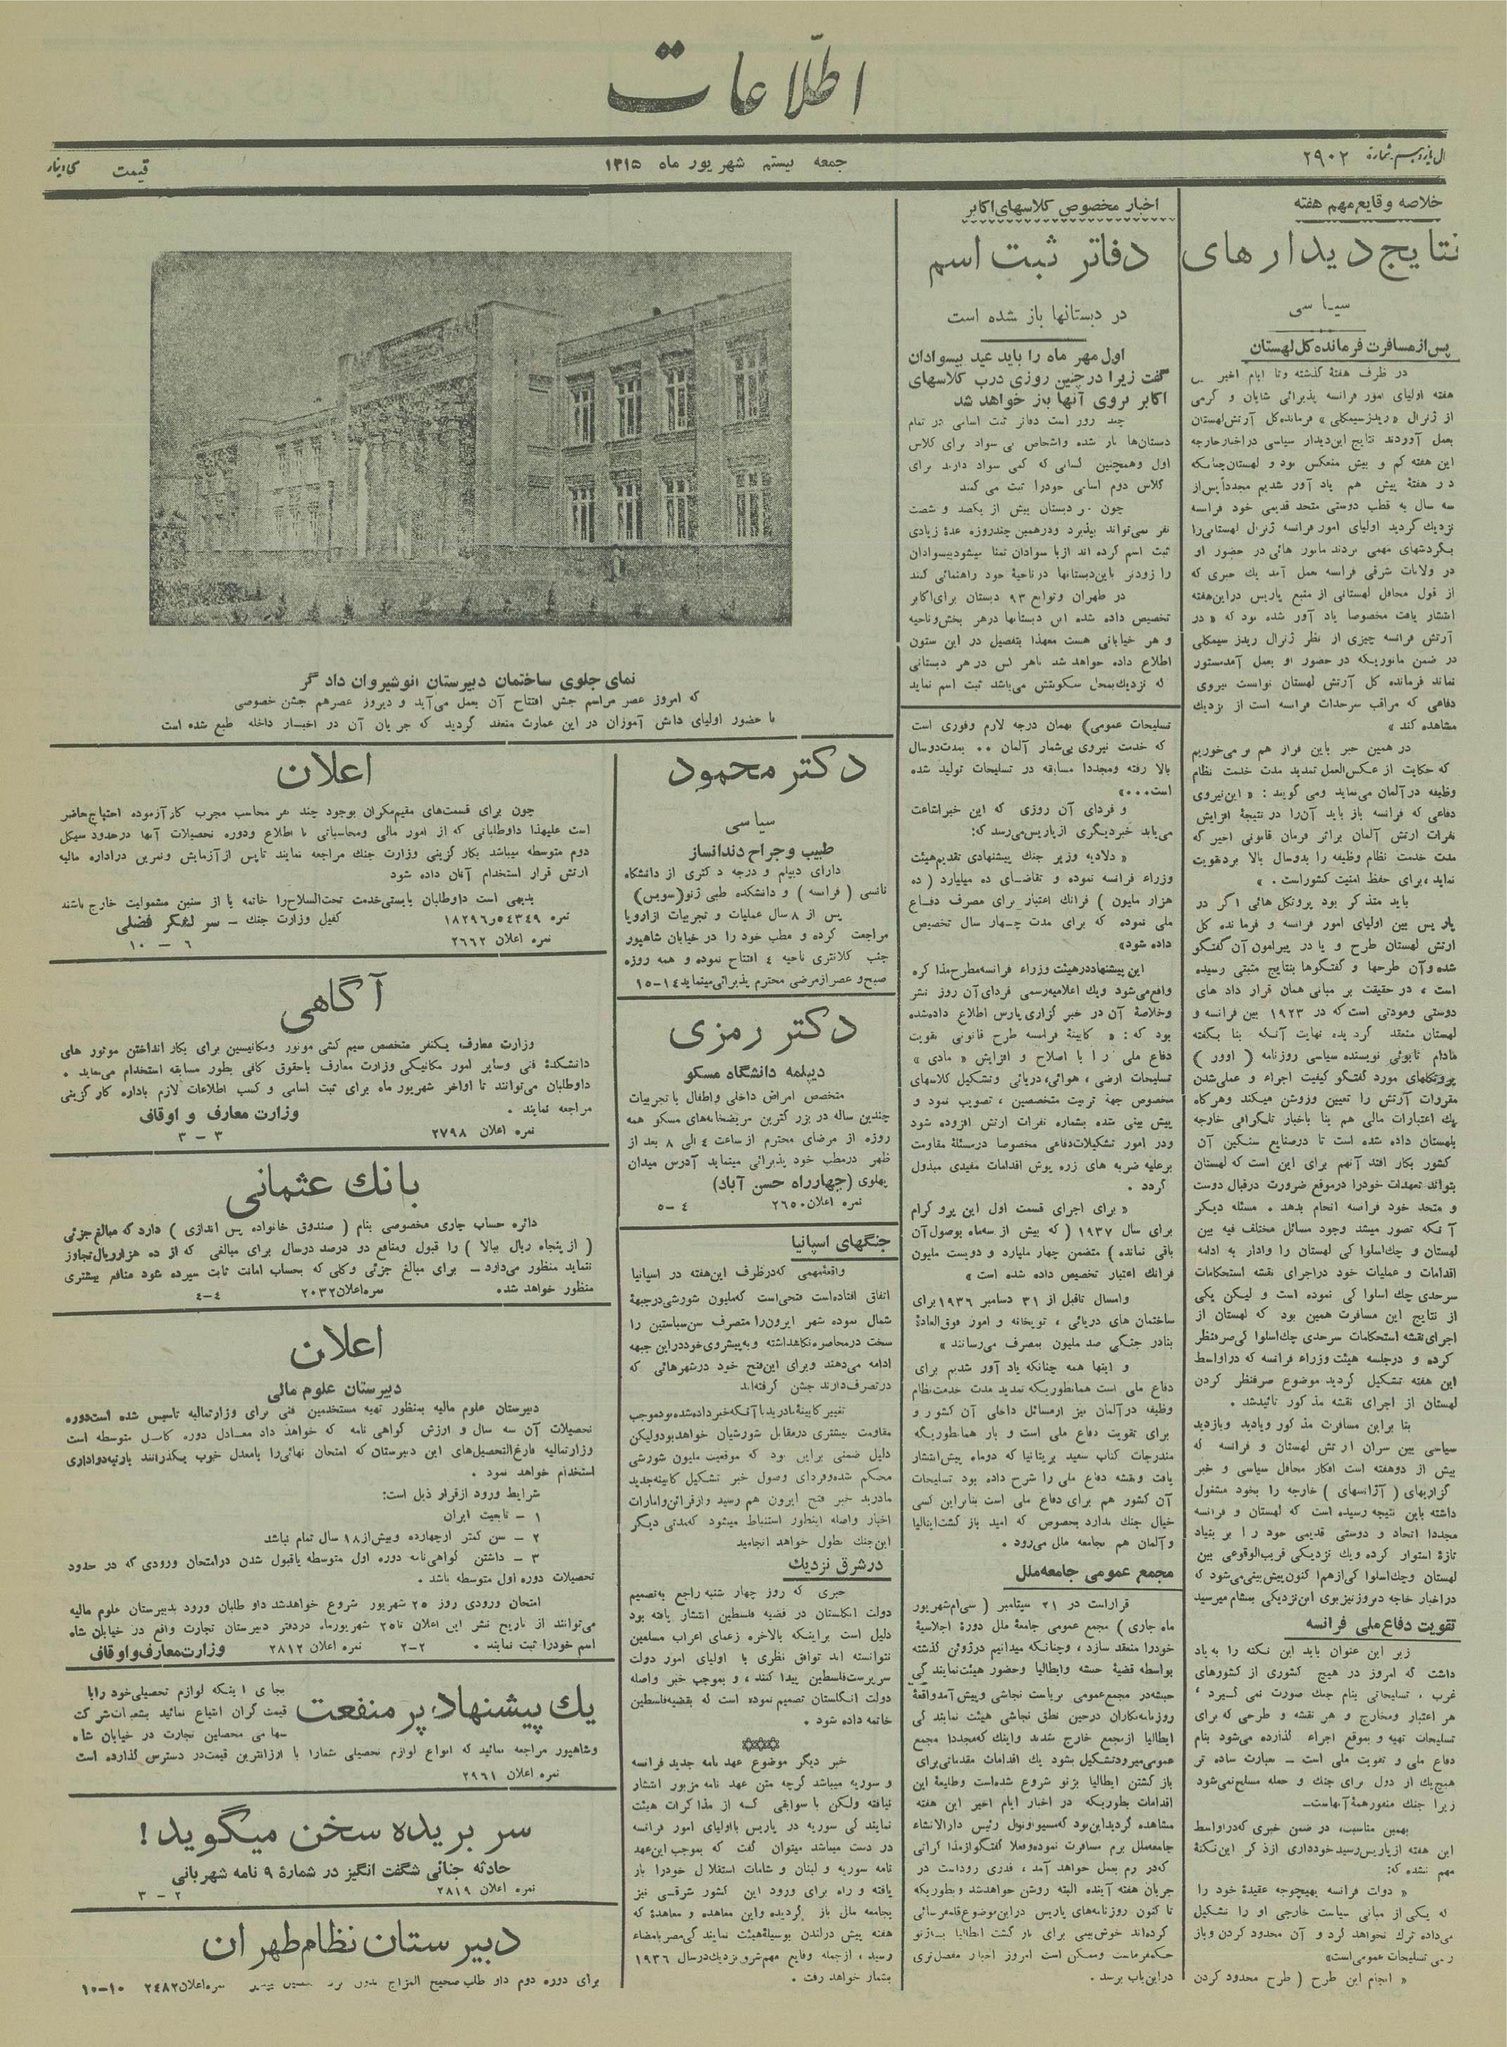 اطلاعات
شمارة ۲۹۰۲
جمعه بیستم شهریور ماه ۱۳۱۵
قیمت
خلاصه وقایع مهم هفته
نتایج دیدارهای
سیاسی
پس از مسافرت فرمانده کل لهستان
در ظرف هفتة گذشته وتا ایام اخیر
هفته اولیای امور فرانسه پذیرائی شایان و گرمی
از ژنرال «ریدزسیمکلی» فرمانده‌کل آرتش‌لهستان
بعمل آوردند نتایج این‌دیدار سیاسی دراخبارخارجه
این هفته کم و بیش منعکس بود و لهستان‌چنانکه
در هفتة پیش هم یاد آور شدیم مجددأپس‌از
سه سال به قطب دوستی متحد قدیمی خود فرانسه
نزدیك گردید اولیای امور فرانسه ژنرال لهستانی‌را
بگردشهای مهمی بردند مانور هائی در حضور او
در ولایات شرقی فرانسه بعمل آمد یك خبری که
از قول محافل لهستانی از منبع پاریس دراین‌هفته
انتشار یافت مخصوصا یاد آور شده بود که «در
آرتش فرانسه چیزی از نظر ژنرال ریدز سیمکلی
در ضمن مانوریکه در حضور او بعمل آمدمستور
نماند فرمانده کل آرتش لهستان توانست نیروی
دفاعی که مراقب سرحدات فرانسه است از نزدیك
مشاهده کند»
در همین خبر باین فراز هم بر می‌خوریم
که حکایت از عکس‌العمل تمدید مدت خدمت نظام
وظیفه درآلمان می‌نماید ومی گویند : «این‌نیروی
دفاعی که فرانسه باز باید آن‌را در نتیجة افزایش
نفرات ارتش آلمان براثر فرمان قانونی اخیر که
مدت خدمت نظام وظیفه را بدوسال بالا بردهویت
نماید ، برای حفظ امنیت کشوراست . »
باید متذکر بود پروتکل هائی اگر در
پاریس بین اولیای امور فرانسه و فرمانده کل
ارتش لهستان طرح و یا در پیرامون آن گفتگو
شده وآن طرحها و گفتگوها بنتایج مثبتی رسیده
است ، در حقیقت بر مبانی همان قرار داد های
دوستی ومودتی است که در ۱۹۲۳ بین فرانسه و
لهستان منعقد گردیده نهایت آنکه بنا بگفته
مادام تابوئی نویسنده سیاسی روزنامه (اوور)
پروتکلهای مورد گفتگو کیفیت اجراء و عملی‌شدن
مقررات آرتش را تعیین وروشن میکند وهرگاه
یك اعتبارات مالی هم بنا باخبار تلگرافی خارجه
بلهستان داده شده است تا درصنایع سنگین آن
کشور بکار افتد آنهم برای این است که لهستان
بتواند تعهدات خودرا درموقع ضرورت درقبال دوست
و متحد خود فرانسه انجام بدهد. مسئله دیگر
آنکه تصور میشد وجود مسائل مختلف فیه بین
لهستان و چك‌اسلوا کی لهستان را وادار به ادامه
اقدامات و عملیات خود دراجرای نقشه استحکامات
سرحدی چك اسلوا کی نموده است و لیکن یکی
از نتایج این مسافرت همین بود که لهستان از
اجرای نقشه استحکامات سرحدی چك‌اسلوا کی‌صرفنظر
کرده و درجلسه هیئت وزراء فرانسه که دراواسط
این هفته تشکیل گردید موضوع صرفنظر کردن
لهستان از اجرای نقشه مذکور تائیدشد.
بنا براین مسافرت مذکور وبادید وبازدید
سیاسی بین سران ارتش لهستان و فرانسه که
بیش از دوهفته است افکار محافل سیاسی و خبر
گزاریهای (آژانسهای) خارجه را بخود مشغول
داشته باین نتیجه رسیده است که لهستان و فرانسه
مجددا اتحاد و دوستی قدیمی خود را بر بنیاد
تازة استوار کرده ویك نزدیکی قریب‌الوقوعی بین
لهستان وچك‌اسلوا کی‌ازهم‌ا کنون‌پیش‌بینی‌می‌شود که
دراخبار خارجه دیروزنیزبوی این‌نزدیکی بمشام میرسید
تقویت دفاع ملی فرانسه
زیر این عنوان باید این نکته را به‌یاد
داشت که امروز در هیچ کشوری از کشورهای
غرب ، تسلیحاتی بنام جنك صورت نمی گیرد ،
هر اعتبار ومخارج و هر نقشه و طرحی که برای
تسلیحات تهیه و بموقع اجراء گذارده می‌شود بنام
دفاع ملی و تقویت ملی است – بعبارت ساده تر
هیچ‌یك از دول برای جنك و حمله مسلح‌نمی‌شود
زیرا جنك منفورهمة‌آنهاست–
بهمین مناسبت، در ضمن خبری که‌دراواسط
این هفته ازپاریس‌رسیدخودداری ازذکر این‌نکتة
مهم نشده که:
« دولت فرانسه بهیچوجه عقیدة خود را
که یکی از مبانی سیاست خارجی او را تشکیل
می‌داده ترك نخواهد کرد و آن محدود کردن وباز
رسی تسلیحات عمومی‌است»
« انجام این طرح (طرح محدود کردن
اخبار مخصوص کلاسهای اکابر
دفاتر ثبت اسم
در دبستانها باز شده است
اول مهر ماه را باید عید بیسوادان
گفت زیرا درچنین روزی درب کلاسهای
اکابر بروی آنها باز خواهد شد
چند روز است دفاتر ثبت اسامی در تمام
دبستان‌ها باز شده واشخاص بی سواد برای کلاس
اول وهمچنین کسانی که کمی سواد دارند برای
کلاس دوم اسامی خودرا ثبت می کنند
چون هر دبستان بیش از یکصد و شصت
نفر نمی‌تواند بپذیرد ودرهمین چندروزه عدة زیادی
ثبت اسم کرده اند ازبا سوادان تمنا میشودبیسوادان
را زودتر باین‌دبستانها درناحیة خود راهنمائی کنند
در طهران وتوابع ۹۳ دبستان برای‌اکابر
تخصیص داده شده این دبستانها درهر بخش‌وناحیه
و هر خیابانی هست معهذا بتفصیل در این ستون
اطلاع داده خواهد شد تاهر کس در هر دبستانی
که نزدیك‌بمحل سکونتش می‌باشد ثبت اسم نماید
تسلیحات عمومی) بهمان درجه لازم وفوری است
که خدمت نیروی بی‌شمار آلمان .. بمدت‌دوسال
بالا رفته ومجددا مسابقه در تسلیحات تولید شده
است...»
و فردای آن روزی که این خبراشاعت
می‌یابد خبردیگری ازپاریس‌می‌رسد که:
« دلادیه وزیر جنك پیشنهادی تقدیم‌هیئت
وزراء فرانسه نموده و تقاضای ده میلیارد (ده
هزار ملیون) فرانك اعتبار برای مصرف دفاع
ملی نموده که برای مدت چهار سال تخصیص
داده شود»
این پیشنهاددرهیئت وزراء فرانسه‌مطرح‌مذا کره
واقع‌می‌شود ویك اعلامیه‌رسمی فردای‌آن روز نشر
وخلاصة آن در خبر گزاری پارس اطلاع داده‌شده
بود که: « کابینة فرانسه طرح قانونی تقویت
دفاع ملی را با اصلاح و افزایش «مادی»
تسلیحات ارضی ، هوائی، دریائی وتشکیل کلاسهای
مخصوص جهة تربیت متخصصین ، تصویب نمود و
پیش بینی شده بشماره نفرات ارتش افزوده شود
ودر امور تشکیلات‌دفاعی مخصوصا درمسئلة مقاومت
برعلیه ضربه های زره پوش اقدامات مفیدی مبذول
گردد .
« برای اجرای قسمت اول این پرو گرام
برای سال ۱۹۳۷ (که بیش از سه‌ماه بوصول‌آن
باقی نمانده) متضمن چهار ملیارد و دویست ملیون
فرانك اعتبار تخصیص داده شده است»
وامسال تاقبل از ۳۱ دسامبر ۱۹۳۶ برای
ساختمان های دریائی ، توپخانه و امور فوق‌العادة
بنادر جنگی صد ملیون بمصرف می‌رسانند»
و اینها همه چنانکه یاد آور شدیم برای
دفاع ملی است همانطوریکه تمدید مدت خدمت‌نظام
وظیفه درآلمان نیز ازمسائل داخلی آن کشور و
برای تقویت دفاع ملی است و باز همانطوریکه
مندرجات کتاب سفید بریتانیا که دوماه پیش‌انتشار
یافت ونقشه دفاع ملی را شرح داده بود تسلیحات
آن کشور هم برای دفاع ملی است بنابراین کسی
خیال جنك ندارد بخصوص که امید باز گشت‌ایتالیا
وآلمان هم بجامعه ملل می‌رود .
مجمع عمومی جامعه‌ملل
قراراست در ۲۱ سپتامبر (سی‌ام‌شهریور
ماه جاری) مجمع عمومی جامعة ملل دورة اجلاسیة
خودرا منعقد سازد ، وچنانکه میدانیم درژوئن گذشته
بواسطه قضیة حبشه وایطالیا وحضور هیئت‌نمایند گی
حبشه‌در مجمع‌عمومی بریاست نجاشی وپیش آمدواقعة
روزنامه‌نگاران درحین نطق نجاشی هیئت نمایند گی
ایطالیا ازمجمع خارج شدند واینك که‌مجددا مجمع
عمومی‌میرودتشکیل بشود یك اقدامات مقدماتی‌برای
باز گشتن ایطالیا بژنو شروع شده‌است وطلیعة این
اقدامات بطوریکه در اخبار ایام اخیر این هفته
مشاهده گردیداین‌بود که‌مسیواونول رئیس دارالانشاء
جامعه‌ملل برم مسافرت نموده‌وفعلا گفتگوازمذا کراتی
که‌در رم بعمل خواهد آمد ، قدری زوداست در
جریان هفته آینده البته روشن خواهدشد وبطوریکه
تا کنون روزنامه‌های پاریس دراین‌موضوع‌قلمفرسائی
کرده‌اند خوش‌بینی برای باز گشت ایطالیا بسازنو
حکمفرماست وممکن است امروز اخبار مفصل‌تری
دراین‌باب برسد .
نمای جلوی ساختمان دبیرستان انوشیروان دادگر
که امروز عصر مراسم جشن افتتاح آن بعمل می‌آید و دیروز عصرهم جشن خصوصی
با حضور اولیای دانش آموزان در این عمارت منعقد گردید که جریان آن در اخبار داخله طبع شده است
دکتر محمود
سیاسی
طبیب وجراح دندانساز
دارای دیپلم و درجه دکتری از دانشگاه
نانسی (فرانسه) و دانشکده طبی ژنو(سویس)
پس از ۸ سال عملیات و تجربیات ازاروپا
مراجعت کرده و مطب خود را در خیابان شاهپور
جنب کلانتری ناحیه ٤ افتتاح نموده و همه روزه
صبح و عصرازمرضی محترم پذیرائی‌مینماید ۱٤–۱۵
دکتر رمزی
دیپلمه دانشگاه مسکو
متخصص امراض داخلی واطفال با تجربیات
چندین ساله در بزرگترین مریضخانه‌های مسکو همه
روزه از مرضای محترم ازساعت ٤ الی ۸ بعد از
ظهر درمطب خود پذیرائی مینماید آدرس میدان
پهلوی (چهارراه حسن آباد)
نمره اعلان۲۶۵۰ ٤–۵
جنگهای اسپانیا
واقعة‌مهمی که‌درظرف این‌هفته در اسپانیا
اتفاق افتاده‌است فتحی‌است که‌ملیون شورشی‌درجبهة
شمال نموده شهر ایرون‌را متصرف سن‌سباستین را
سخت درمحاصره نگاهداشته و به‌پیشروی‌خوددراین جبهه
ادامه می‌دهند وبرای این‌فتح خود درشهرهائی که
درتصرف‌دارند جشن گرفته‌اند
تغییر کابینة مادرید باآنکه خبرداده‌شده‌بودموجب
مقاومت بیشتری درمقابل شورشیان خواهدبودولیکن
دلیل ضمنی براین بود که موقعیت ملیون شورشی
محکم شده‌وفردای وصول خبر تشکیل کابینه‌جدید
مادرید خبر فتح ایرون هم رسید وازقرائن‌وامارات
اخبار واصله اینطور استنباط میشود که‌مدتی دیگر
این‌جنك بطول خواهد انجامید
درشرق نزدیك
خبری که روز چهار شنبه راجع به‌تصمیم
دولت انگلستان در قضیه فلسطین انتشار یافته بود
دلیل است براینکه بالاخره زعمای اعراب مسلمین
نتوانسته اند توافق نظری با اولیای امور دولت
سرپرست‌فلسطین پیدا کنند ، و بموجب خبر واصله
دولت انگلستان تصمیم نموده است که بقضیه‌فلسطین
خاتمه داده شود .
خبر دیگر موضوع عهد نامه جدید فرانسه
و سوریه میباشد گرچه متن عهد نامه مزبور انتشار
نیافته ولکن با سوابقی که از مذاکرات هیئت
نمایند گی سوریه در پاریس بااولیای امور فرانسه
در دست میباشد میتوان گفت که بموجب این‌عهد
نامه سوریه و لبنان و شامات استقلال خودرا باز
یافته و راه برای ورود این کشور شرقی نیز
بجامعه ملل باز گردیده واین معاهده و معاهدة که
هفته پیش درلندن بوسیلة‌هیئت نمایند گی‌مصربامضاء
رسید ، ازجمله وقایع مهم‌شرق‌نزدیك‌درسال ۱۹۳۶
بشمار خواهد رفت .
اعلان
چون برای قسمت‌های مقیم‌مکران بوجود چند نفر محاسب مجرب کارآزموده احتیاج‌حاضر
است علیهذا داوطلبانی که از امور مالی ومحاسباتی با اطلاع ودوره تحصیلات آنها درحدود سیکل
دوم متوسطه میباشد بکار گزینی وزارت جنك مراجعه نمایند تاپس ازآزمایش وتمرین دراداره مالیه
ارتش قرار استخدام آنان داده شود
بدیهی است داوطلبان بایستی‌خدمت تحت‌السلاح‌را خاتمه یا از سنین مشمولیت خارج باشند
نمره ۵٤۳٤۹ر۱۸۲۹۶ کفیل وزارت جنك – سر لشگر فضلی
نمره اعلان ۲۶۶۲ ۶ – ۱۰
آگاهی
وزارت معارف، یکنفر متخصص سیم کشی موتور ومکانیسین برای بکار انداختن موتور های
دانشکدة فنی وسایر امور مکانیکی وزارت معارف باحقوق کافی بطور مسابقه استخدام می‌نماید .
داوطلبان می‌توانند تا اواخر شهریور ماه برای ثبت اسامی و کسب اطلاعات لازم باداره کار گزینی
مراجعه نمایند . وزارت معارف و اوقاف
نمره اعلان ۲۷۹۸ ۳ – ۳
بانك عثمانی
دائره حساب جاری مخصوصی بنام (صندوق خانواده پس اندازی) دارد که مبالغ‌جزئی
(از پنجاه ریال ببالا) را قبول ومنافع دو درصد درسال برای مبالغی که از ده هزارریال‌تجاوز
ننماید منظور می‌دارد – برای مبالغ جزئی وکلی که بحساب امانت ثابت سپرده شود منافع بیشتری
منظور خواهد شد. نمره‌اعلان۲۰۳۲ ٤–٤
اعلان
دبیرستان علوم مالی
دبیرستان علوم مالیه بمنظور تهیه مستخدمین فنی برای وزارتمالیه تاسیس شده است‌دوره
تحصیلات آن سه سال و ارزش گواهی نامه که خواهد داد معادل دوره کامل متوسطه است
وزارتمالیه فارغ‌التحصیل‌های این دبیرستان که امتحان نهائی‌را بامعدل خوب بگذرانند بارتبه‌دواداری
استخدام خواهد نمود .
شرایط ورود ازقرار ذیل است:
۱ – تابعیت ایران
۲ – سن کمتر ازچهارده وبیش‌از۱۸ سال تمام نباشد
۳ – داشتن گواهی‌نامه دوره اول متوسطه یاقبول شدن درامتحان ورودی که در حدود
تحصیلات دوره اول متوسطه باشد .
امتحان ورودی روز ۲۵ شهریور شروع خواهدشد داو طلبان ورود بدبیرستان علوم مالیه
می‌توانند از تاریخ نشر این اعلان تا۲۵ شهریورماه دردفتر دبیرستان تجارت واقع در خیابان شاه
اسم خودرا ثبت نمایند . ۲–۲ نمره اعلان ۲۸۱۲ وزارت‌معارف‌واوقاف
یك پیشنهاد پر منفعت
بجای اینکه لوازم تحصیلی‌خود رابا
قیمت گران ابتیاع نمائید بشعبات‌شرکت
سهامی محصلین تجارت در خیابان شاه
وشاهپور مراجعه نمائید که انواع لوازم تحصیلی شمارا با ارزانترین قیمت‌در دسترس گذارده است
نمره اعلان ۲۹۶۱
سر بریده سخن میگوید!
حادثه جنائی شگفت انگیز در شمارة ۹ نامه شهربانی
نمره اعلان ۲۸۱۹ ۲ – ۳
دبیرستان نظام‌طهران
برای دوره دوم داو طلب صحیح المزاج نمره‌اعلان۲٤۸۲ ۱۰–۱۰